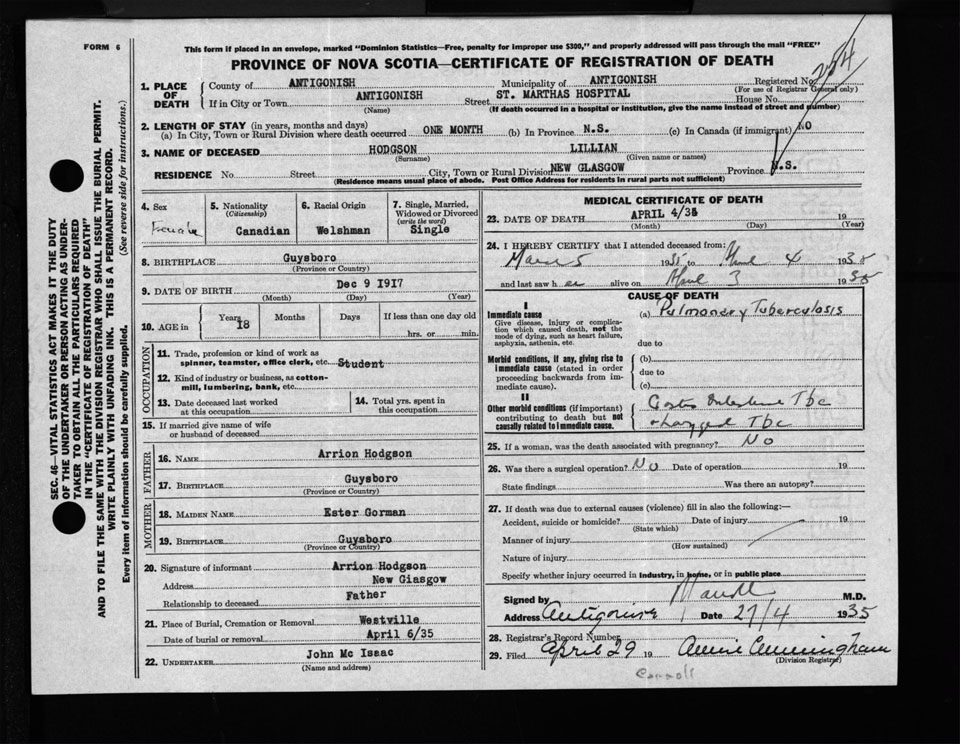 FORM 6
This form if placed in an envelope, marked "Dominion Statistics—Free, penalty for improper use $300," and properly addressed will pass through the mail "FREE"
PROVINCE OF NOVA SCOTIA—CERTIFICATE OF REGISTRATION OF DEATH
254
1. PLACE OF DEATH County of ANTIGONISH Municipality of ANTIGONISH Registered No.
(For use of Registrar General only)
If in City or Town ANTIGONISH Street ST. MARTHAS HOSPITAL House No.
(Name) (If death occurred in a hospital or institution, give the name instead of street and number)
2. LENGTH OF STAY (in years, months and days)
(a) In City, Town or Rural Division where death occurred ONE MONTH (b) In Province N.S. (c) In Canada (if immigrant) NO
3. NAME OF DECEASED HODGSON LILLIAN
(Surname) (Given name or names)
RESIDENCE No. Street City, Town or Rural Division NEW GLASGOW Province N.S.
(Residence means usual place of abode. Post Office Address for residents in rural parts not sufficient)
SEC. 46—VITAL STATISTICS ACT MAKES IT THE DUTY
OF THE UNDERTAKER OR PERSON ACTING AS UNDER-
TAKER TO OBTAIN ALL THE PARTICULARS REQUIRED
IN THE "CERTIFICATE OF REGISTRATION OF DEATH"
AND TO FILE THE SAME WITH THE DIVISION REGISTRAR WHO SHALL ISSUE THE BURIAL PERMIT.
WRITE PLAINLY WITH UNFADING INK. THIS IS A PERMANENT RECORD.
Every item of information should be carefully supplied. (See reverse side for instructions.)
4. Sex Female
5. Nationality (Citizenship) Canadian
6. Racial Origin Welshman
7. Single, Married, Widowed or Divorced (write the word) Single
8. BIRTHPLACE Guysboro
(Province or Country)
9. DATE OF BIRTH Dec 9 1917
(Month) (Day) (Year)
10. AGE in Years 18 Months Days If less than one day old
hrs. or min.
OCCUPATION
11. Trade, profession or kind of work as
spinner, teamster, office clerk, etc. Student
12. Kind of industry or business, as cotton-
mill, lumbering, bank, etc.
13. Date deceased last worked at this occupation
14. Total yrs. spent in this occupation
15. If married give name of wife
or husband of deceased
FATHER
16. NAME Arrion Hodgson
17. BIRTHPLACE Guysboro
(Province or Country)
MOTHER
18. MAIDEN NAME Ester Gorman
19. BIRTHPLACE Guysboro
(Province or Country)
20. Signature of informant Arrion Hodgson
Address New Glasgow
Relationship to deceased Father
21. Place of Burial, Cremation or Removal Westville
Date of burial or removal April 6/35
22. UNDERTAKER John Mc Isaac
(Name and address)
MEDICAL CERTIFICATE OF DEATH
23. DATE OF DEATH APRIL 4/35 19
(Month) (Day) (Year)
24. I HEREBY CERTIFY that I attended deceased from:
1935 to April 4 1935
and last saw her alive on April 3 1935
CAUSE OF DEATH
I
Immediate cause (a) Pulmonary Tuberculosis
Give disease, injury or complication which caused death, not the mode of dying, such as heart failure, asphyxia, asthenia, etc.
due to
Morbid conditions, if any, giving rise to immediate cause (stated in order proceeding backwards from immediate cause).
(b)
due to
(c)
II
Other morbid conditions (if important) contributing to death but not causally related to immediate cause.
Tbc
Tbc
25. If a woman, was the death associated with pregnancy? NO
26. Was there a surgical operation? NO Date of operation 19
State findings Was there an autopsy?
27. If death was due to external causes (violence) fill in also the following:—
Accident, suicide or homicide? Date of injury 19
(State which)
Manner of injury
(How sustained)
Nature of injury
Specify whether injury occurred in industry, in home, or in public place
Signed by M.D.
Address Antigonish Date 27/4 1935
28. Registrar's Record Number
29. Filed April 29 19 Annie Cunningham
(Division Registrar)